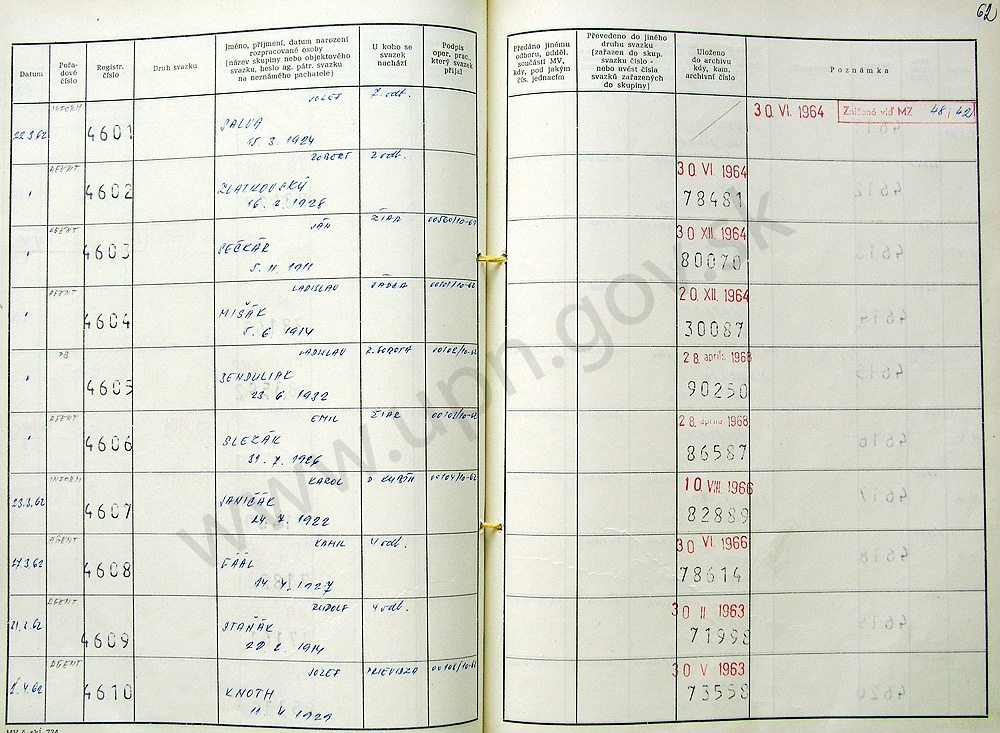 62
Datum
Pořa-
dové
číslo
Registr.
číslo
Druh svazku
Jméno, příjmení, datum narození
rozpracované osoby
(název skupiny nebo objektového
svazku, heslo ag. pátr. svazku
na neznámého pachatele)
U koho se
svazek
nachází
Podpis
oper. prac.,
který svazek
přijal
Předáno jinému
odboru, odděl.
součásti MV,
kdy, pod jakým
čís. jednacím
Převedeno do jiného
druhu svazku
(zařazen do skup.
svazku číslo -
nebo uvést čísla
svazků zařazených
do skupiny)
Uloženo
do archivu
kdy, kam,
archivní číslo
Poznámka
INFORM JOZEF 7. odb.
22.3.62 4601 30. VI. 1964 Zničené viď MZ 48/42
15. 3. 1924
AGENT ROBERT 2 odb.
" 4602 ZLATNOVSKÝ 30. VI. 1964
16. 2. 1928 78481
AGENT JÁN ŽIAR
" 4603 PEČKÁR 30 XII. 1964
5. 11 1911 80070
AGENT LADISLAV
" 4604 MIŠÁK 20. XII. 1964
5. 6. 1914 30087
PB LADISLAV R. SOBOTA
" 4605 28. apríla 1968
23. 6. 1932 90250
AGENT EMIL ŽIAR
" 4606 SLEZÁK 28. apríla 1968
31. 7. 1926 86587
INFORM KAROL D. KUBÍN
23.3.62 4607 JANIČÁK 10. VIII. 1966
24. 7. 1922 82889
AGENT KAMIL 4 odb.
4608 30 VI. 1966
14. 4. 1927 78614
AGENT RUDOLF 4 odb.
4609 30 II 1963
1914 71998
AGENT JOZEF PRIEVIDZA
2.4.62 4610 KNOTH 30 V 1963
11. 4. 1929 73558
www.upn.gov.sk